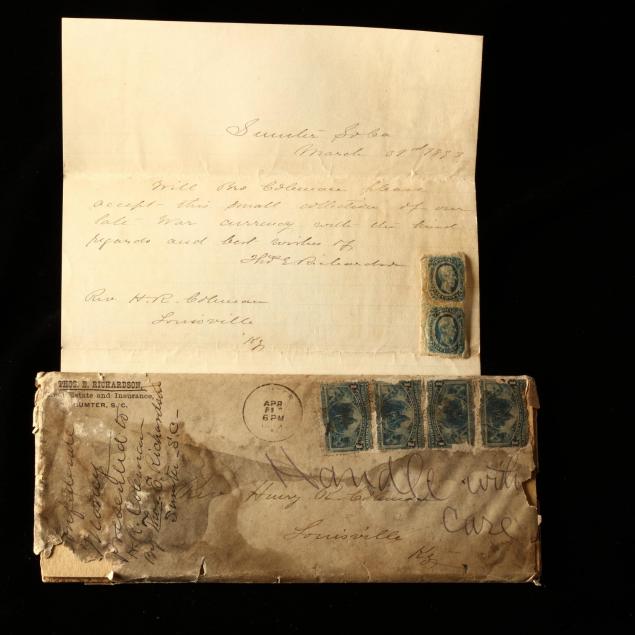 Sumter So Ca
March 1893
Will Bro Coleman please
accept this small collection of our
late War currency with the kind
regards and best wishes of
Thos E Richardson
Rev H. R. Coleman
Louisville
Ky
THOS. E. RICHARDSON,
Real Estate and Insurance,
SUMTER, S. C.
APR
6 PM
Handle with
care
Rev Henry R. Coleman
Louisville
Ky
Confederate
Money
presented to
H R Coleman
by Thos E Richardson
Sumter S C